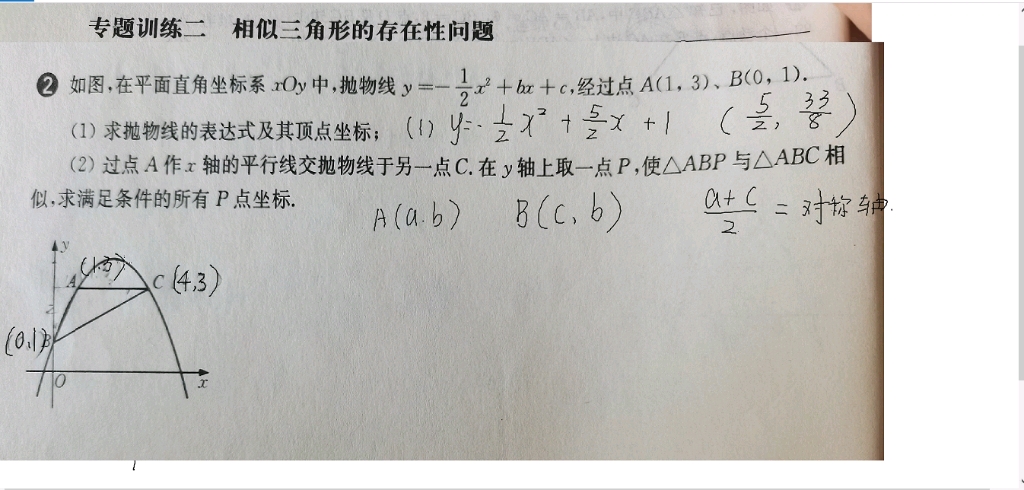 专题训练二 相似三角形的存在性问题
❷ 如图,在平面直角坐标系 xOy 中,抛物线 y=-1/2x²+bx+c,经过点 A(1,3)、B(0,1).
(1) 求抛物线的表达式及其顶点坐标; (1) y=-1/2x²+5/2x+1 (5/2, 33/8)
(2) 过点 A 作 x 轴的平行线交抛物线于另一点 C.在 y 轴上取一点 P,使△ABP 与△ABC 相
似,求满足条件的所有 P 点坐标.
A(a.b) B(c,b) a+c/2=对称轴.
y
A (1,3) C (4,3)
(0,1) B
O x